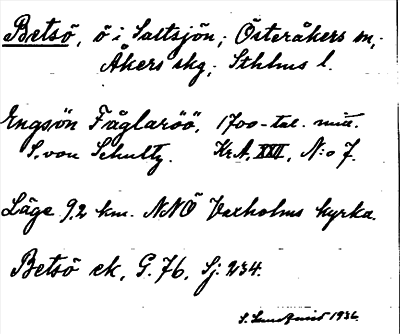 Betsö, ö i Saltsjön, Österåkers sn,
Åkers skg, Sthlms l.
Engsön Fåglaröö, 1700-tal. mitt.
S. von Schultz. KrA, XXII, N:o 7.
Läge 9,2 km. NNÖ Vaxholms kyrka.
Betsö ek, G. 76, Sj. 234.
1936.